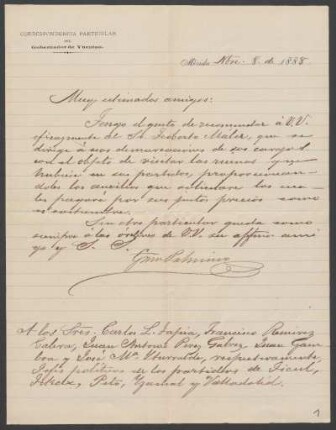 CORRESPONDENCIA PARTICULAR
DEL
Gobernador de Yucatan.
Mérida Nbre. 8 de 1888
Muy estimados amigos:
Tengo el gusto de recomendar á V.V.
eficazmente al Sr. Teoberto Maler, que se
dirige á esas demarcaciones de sus cargos
con el objeto de visitar las ruinas
en sus partidos, proporcionan-
doles los auxilios que
pagará por sus justos precios como
es costumbre.
Sin otro particular quedo como
siempre á las órdenes de V.V. su affmo. ami
go y S. S.
Gmo Palomino
A los Sres. Carlos L. Tapia, Francisco Ramirez
Calera, Juan Antonio Perez Galvez, Juan Gam
boa y José Ma. Iturralde, respectivamente,
Jefes politicos de los partidos de Ticul,
Peto, Yzamal y Valladolid.
1